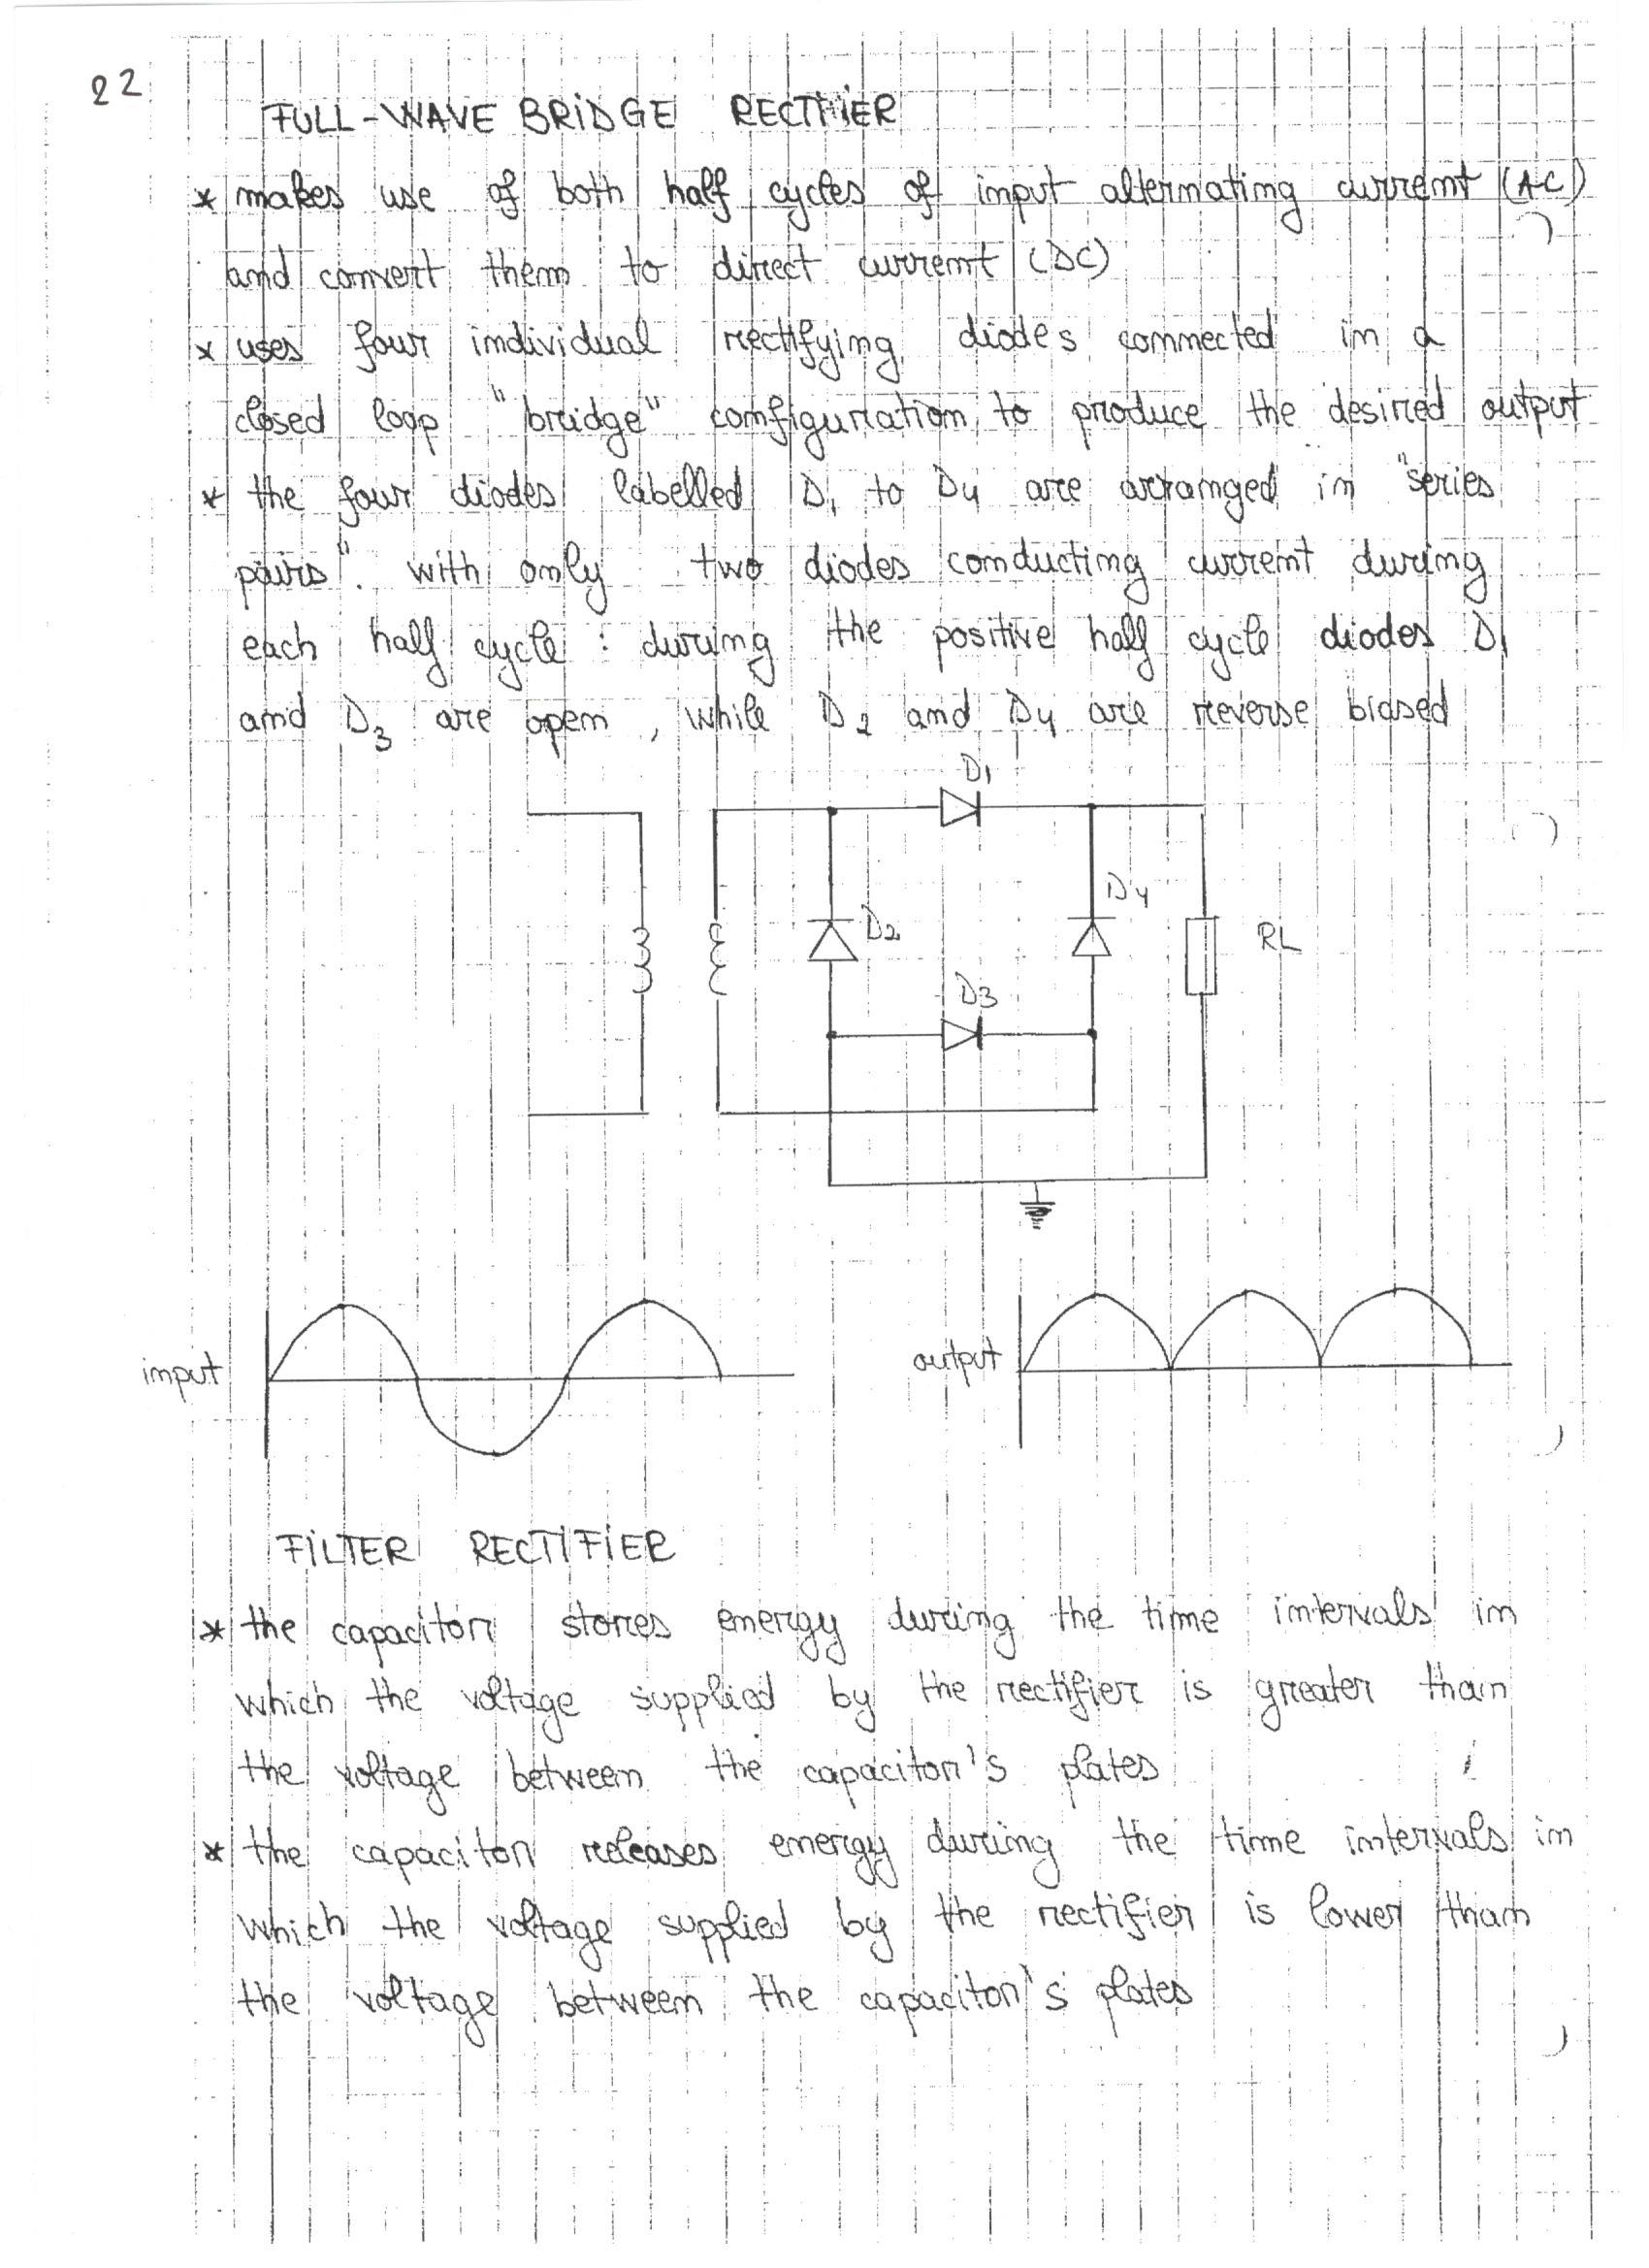 22
FULL-WAVE BRIDGE RECTIFIER
* makes use of both half cycles of input alternating current (AC)
and convert them to direct current (DC)
* uses four individual rectifying diodes connected in a
closed loop "bridge" configuration to produce the desired output
* the four diodes labelled D1 to D4 are arranged in "series
pairs" with only two diodes conducting current during
each half cycle : during the positive half cycle diodes D1
and D3 are open, while D2 and D4 are reverse biased
D1
D4
D2
RL
D3
input
output
FILTER RECTIFIER
* the capacitor stores energy during the time intervals in
which the voltage supplied by the rectifier is greater than
the voltage between the capacitor's plates
* the capacitor releases energy during the time intervals in
which the voltage supplied by the rectifier is lower than
the voltage between the capacitor's plates